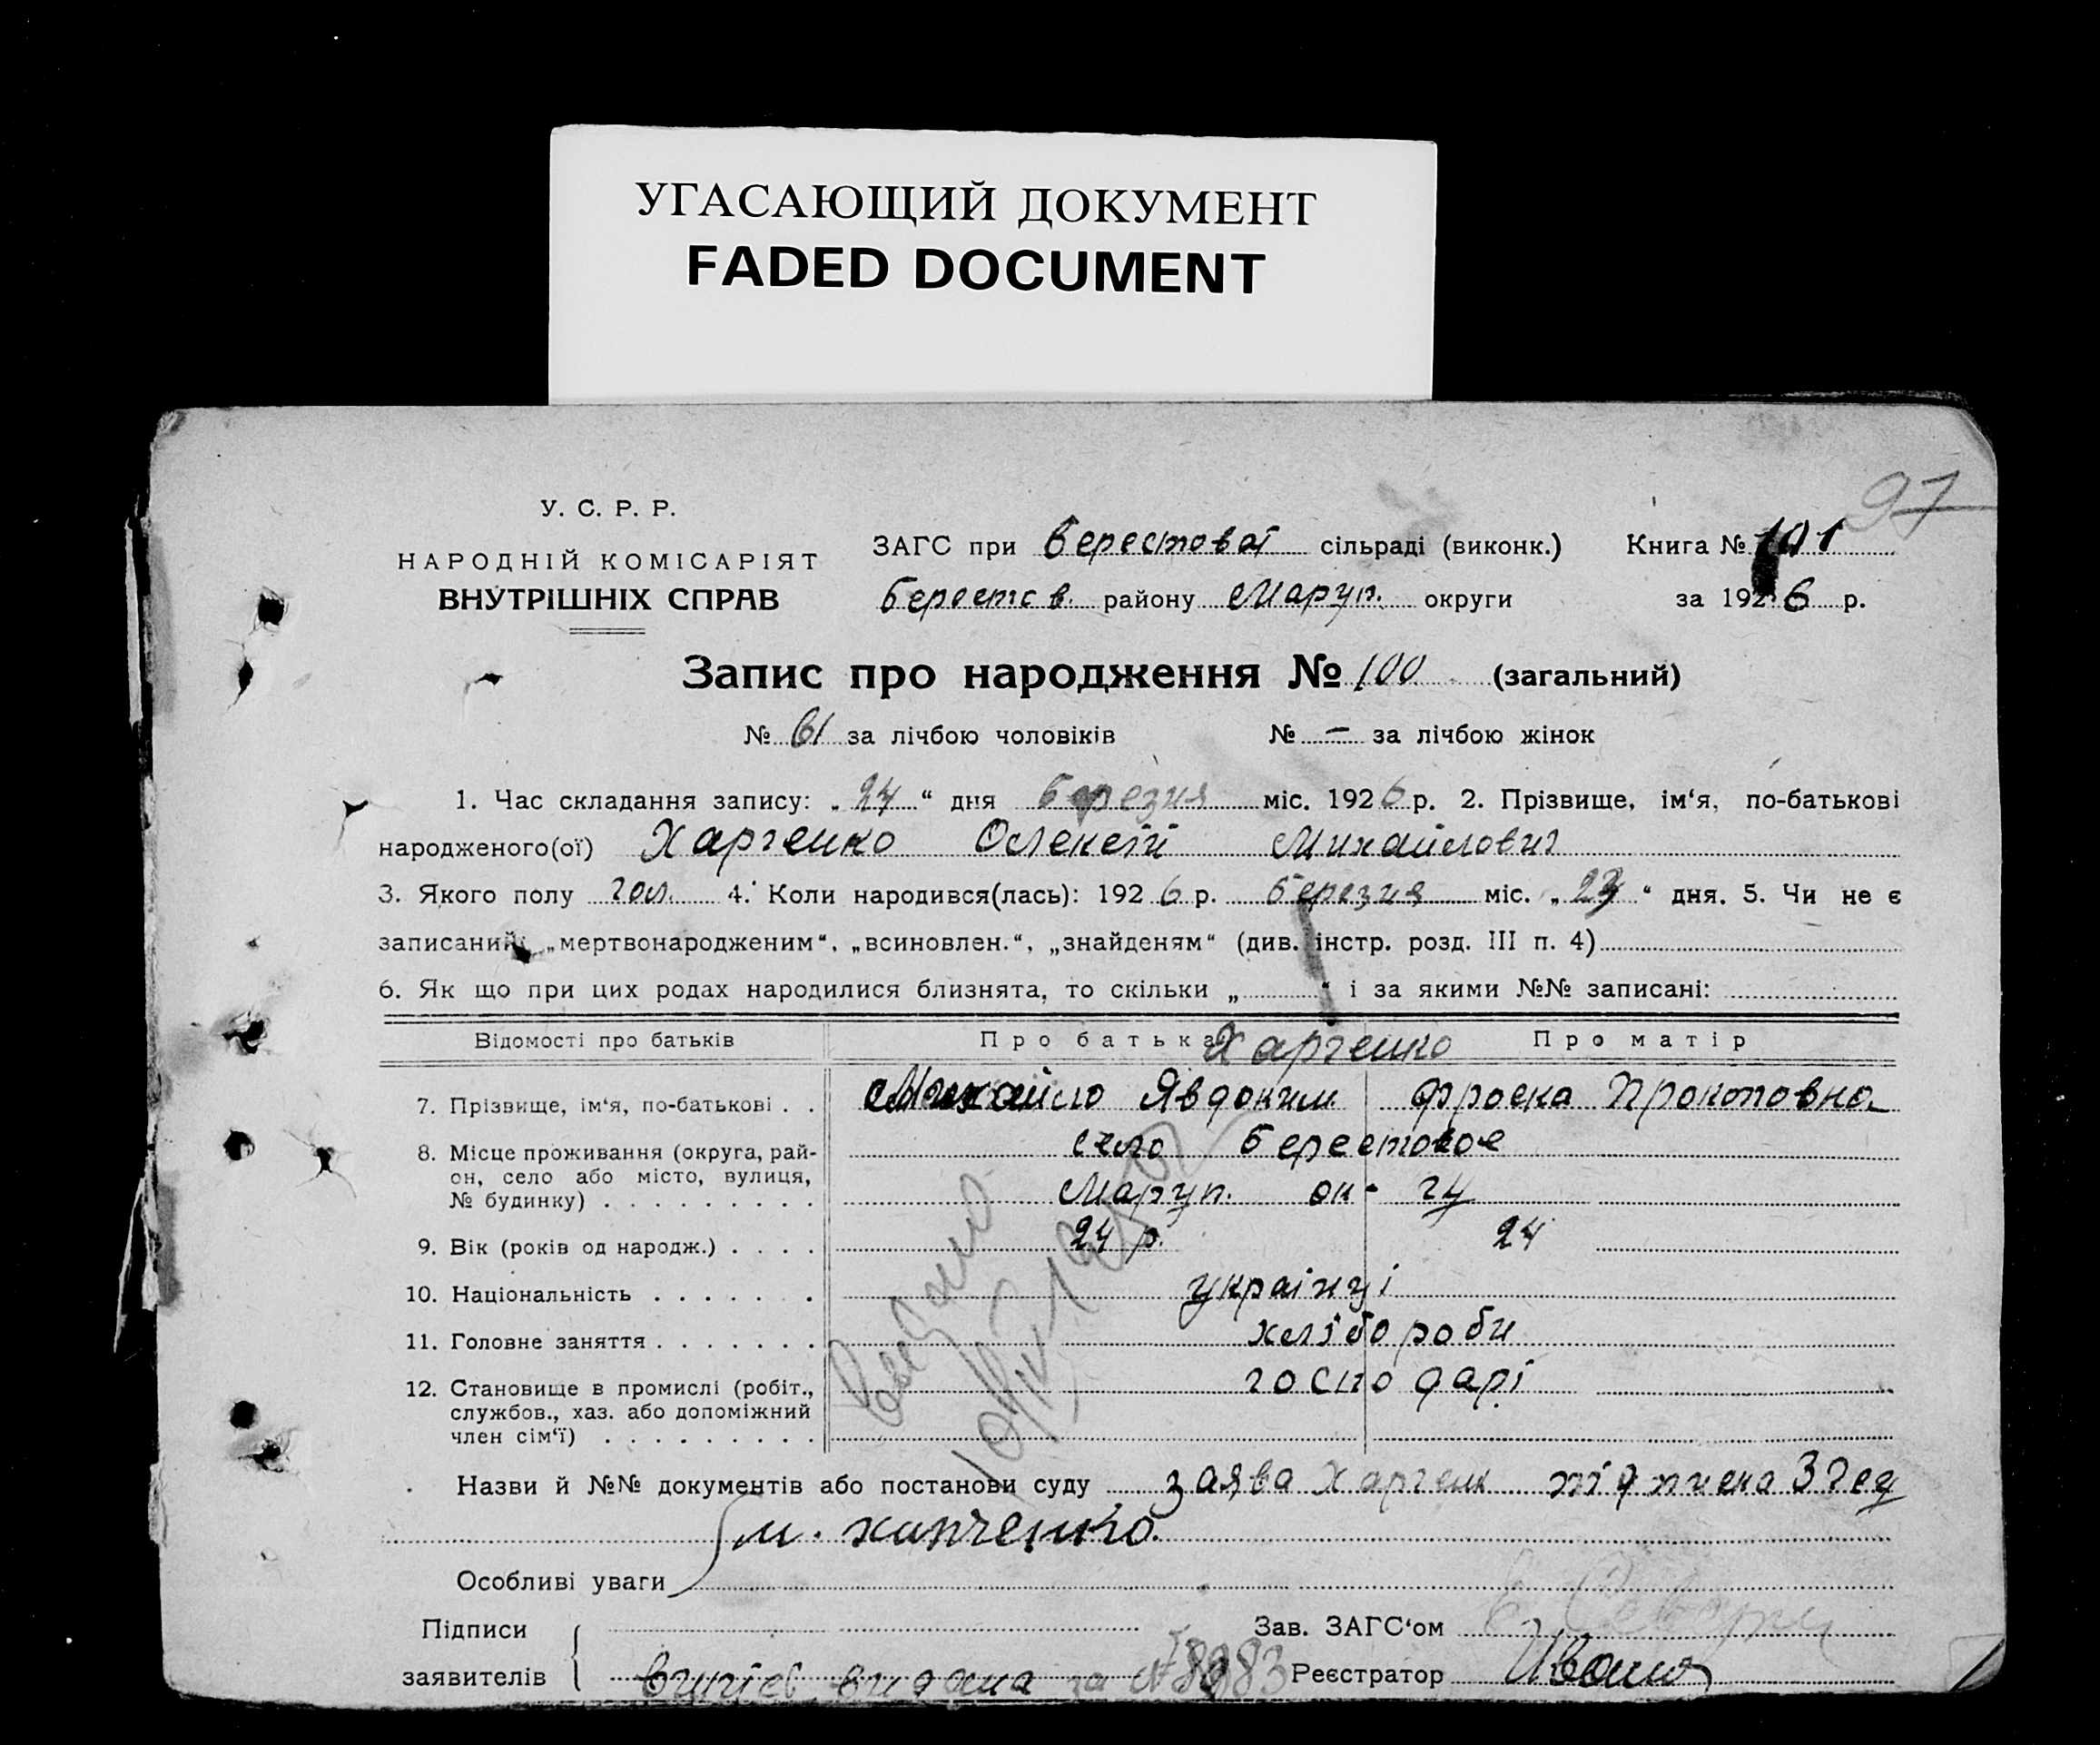 УГАСАЮЩИЙ ДОКУМЕНТ
FADED DOCUMENT
97
У. С. Р. Р.
НАРОДНІЙ КОМІСАРІЯТ
ВНУТРІШНІХ СПРАВ
ЗАГС при Берестової сільраді (виконк.) Книга № 101
Берестов. району Маруп. округи за 1926 р.
Запис про народження № 100 (загальний)
№ 61 за лічбою чоловіків № – за лічбою жінок
1. Час складання запису: „24“ дня березня міс. 1926 р. 2. Прізвище, ім‘я, по-батькові
народженого(ої) Харченко Олексій Михайлович
3. Якого полу чол. 4. Коли народився(лась): 1926 р. березня міс. „23“ дня. 5. Чи не є
записаний: „мертвонародженим“, „всиновлен.“, „знайденям“ (див. інстр. розд. III п. 4)
6. Як що при цих родах народилися близнята, то скільки „ “ і за якими №№ записані:
Відомості про батьків Про батька Харченко Про матір
7. Прізвище, ім‘я, по-батькові . . Михайло Явдоким Фроска Прокоповна
8. Місце проживання (округа, рай-
он, село або місто, вулиця,
№ будинку) . . . . . . . . . село Берестовое
Маруп. ок-гу
9. Вік (років од народж.) . . . . 24 р. 24
10. Національність . . . . . . . українці
11. Головне заняття . . . . . . . хлібороби
12. Становище в промислі (робіт.,
службов., хаз. або допоміжний
член сім‘ї) . . . . . . . . . господарі
Назви й №№ документів або постанови суду заява Харченк
М. Харченко.
Особливі уваги
Підписи
заявителів
Зав. ЗАГС‘ом
видана за №
Реєстратор